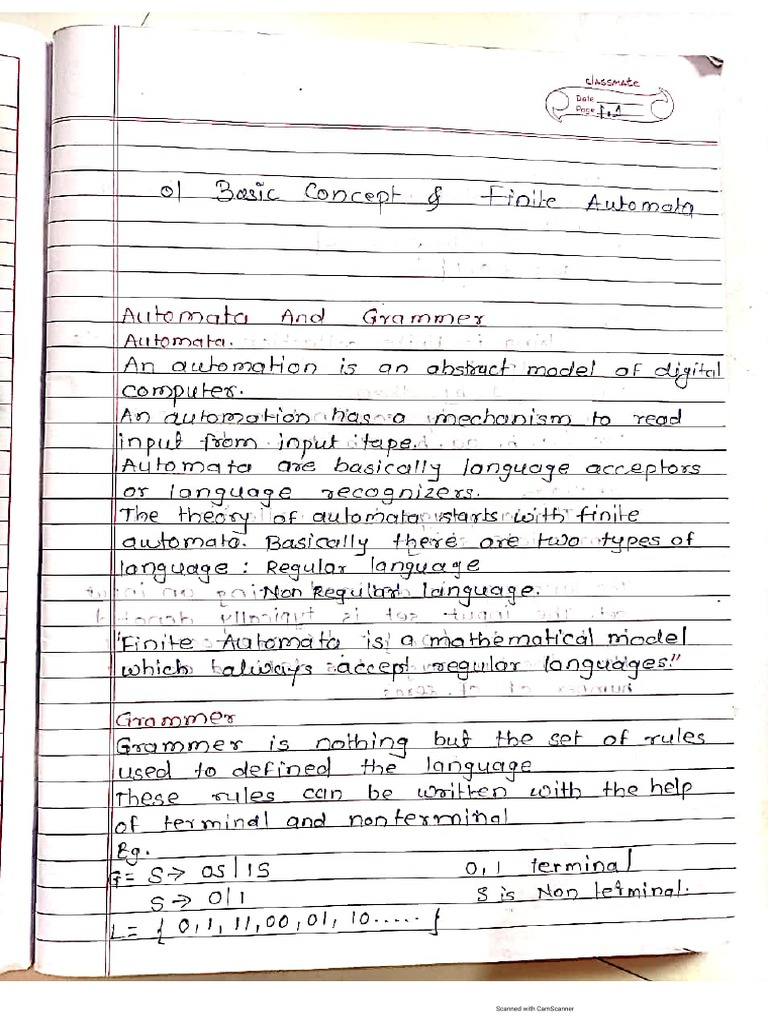 classmate
Date
Page 1.1
01 Basic Concept & Finite Automata
Automata And Grammer
Automata.
An automation is an abstract model of digital
computer.
An automation has a mechanism to read
input from input tape.
Automata are basically language acceptors
or language recognizers.
The theory of automata starts with finite
automata. Basically there are two types of
language : Regular language
Non Regular language.
"Finite Automata is a mathematical model
which always accept regular languages."
Grammer
Grammer is nothing but the set of rules
used to defined the language
These rules can be written with the help
of terminal and nonterminal
Eg.
G= S→ 0S|1S 0,1 terminal
S→ 0|1 S is Non terminal.
L= { 0,1,11,00,01,10..... }
Scanned with CamScanner